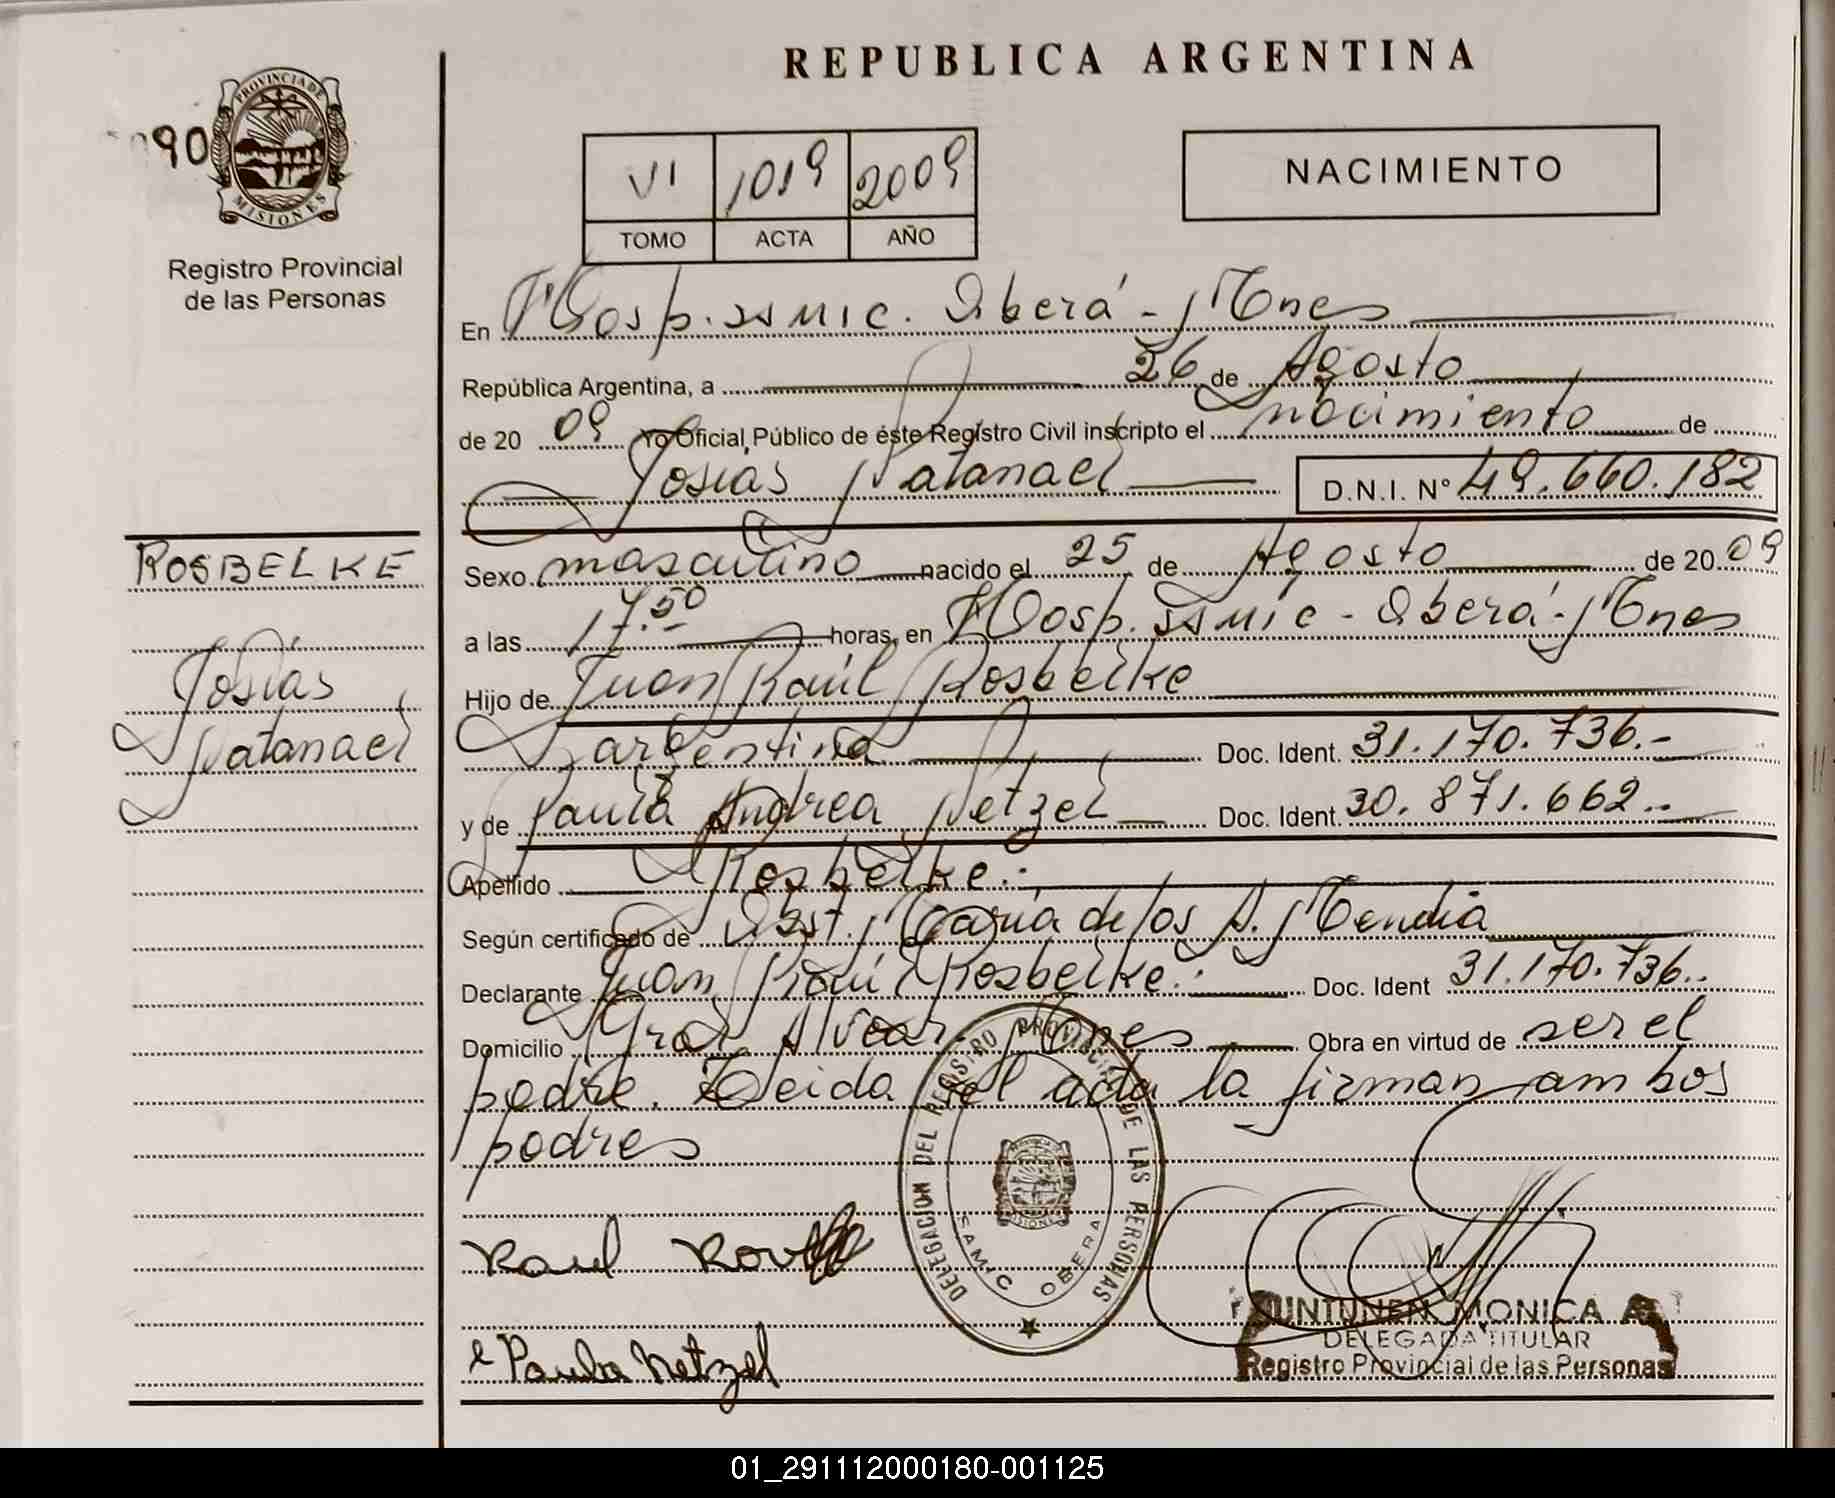 REPUBLICA ARGENTINA
90
PROVINCIA DE
MISIONES
Registro Provincial
de las Personas
VI 1019 2009
TOMO ACTA AÑO
NACIMIENTO
En Hosp. SAMIC. Oberá - Mnes
República Argentina, a 26 de Agosto
de 20 09 Yo Oficial Público de éste Registro Civil inscripto el nacimiento de
Josías Natanael D.N.I. N° 49.660.182
ROSBELKE
Josías
Natanael
Sexo masculino nacido el 25 de Agosto de 20 09
a las 17.50 horas, en Hosp. SAMIC - Oberá - Mnes
Hijo de Juan Raúl Rosbelke
argentina Doc. Ident. 31.170.736.-
y de Paula Andrea Netzel Doc. Ident. 30.871.662.-
Apellido Rosbelke.-
Según certificado de Obst. María de los A. Mendia
Declarante Juan Raúl Rosbelke.- Doc. Ident 31.170.736.-
Domicilio Gral Alvear. Mnes Obra en virtud de ser el
padre. Leida el acta la firman ambos
padres
DELEGACION DEL REGISTRO PROVINCIAL DE LAS PERSONAS
SAMIC OBERA
MISIONES
Raul
Paula Netzel
MONICA A.
DELEGADA TITULAR
Registro Provincial de las Personas
01_291112000180-001125